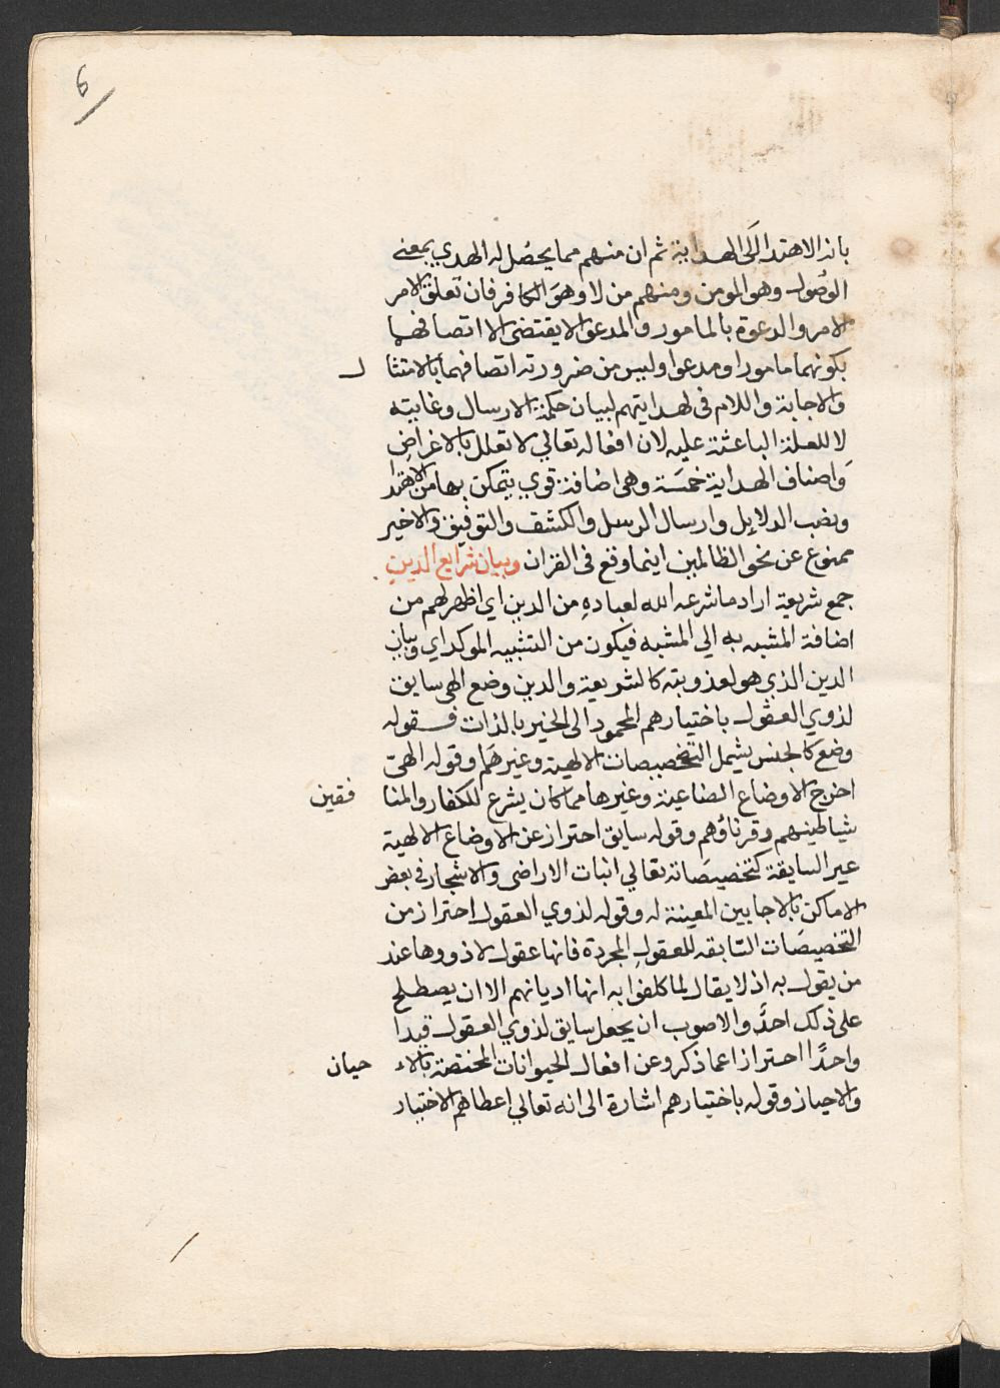 6
بانه الاهتدا الى الهداية ثم ان منهم مما يحصل له الهدي بمعنى
الوصول وهو المومن ومنهم من لا وهو الكافر فان تعلق الامر
الامر والدعوة بالمامور والمدعو لا يقتضى الا اتصافهما
بكونهما مامورا ومدعوا وليس من ضرورته اتصافهما بالامتثا ل
والاجابة واللام فى لهدايتهم لبيان حكمة الارسال وغايته
لا للعلة الباعثة عليه لان افعاله تعالي لا تعلل بالاغراض
واصناف الهداية خمسة وهى اضافة قوي يتمكن بها من الاهتدا
ونصب الدلايل وارسال الرسل والكشف والتوفيق والاخير
ممنوع عن نحو الظالمين اينما وقع فى القران وبيان شرايع الدين
جمع شريعة اراد ما شرعه الله لعباده من الدين اي اظهر لهم من
اضافة المشبه به الي المشبه فيكون من التشبيه الموكد اي وبيان
الدين الذي هو لعذوبته كالشريعة والدين وضع الهى سايق
لذوي العقول باختيارهم المحمود الى الخير بالذات فقوله
وضع كالجنس يشمل التخصيصات الالهية وغيرها وقوله الهى
اخرج الاوضاع الصناعية وغيرها مما كان يشرع للكفار والمنا فقين
شياطينهم وقرناؤهم وقوله سايق احتراز عن الاوضاع الالهية
غير السايقة كتخصيصاته تعالي انبات الاراضى والاشجار في بعض
الاماكن بالاحايين المعينة له وقوله لذوي العقول احتراز من
التخصيصات السابقه للعقول المجردة فانها عقول لا ذووها عند
من يقول به اذ لا يقال لما كلفوا به انها اديانهم الا ان يصطلح
على ذلك احد والاصوب ان يجعل سايق لذوي العقول قيدا
واحدا احترازا عما ذكر وعن افعال الحيوانات المختصة بالا حيان
والاحياز وقوله باختيارهم اشارة الى انه تعالي اعطاهم الاختيار